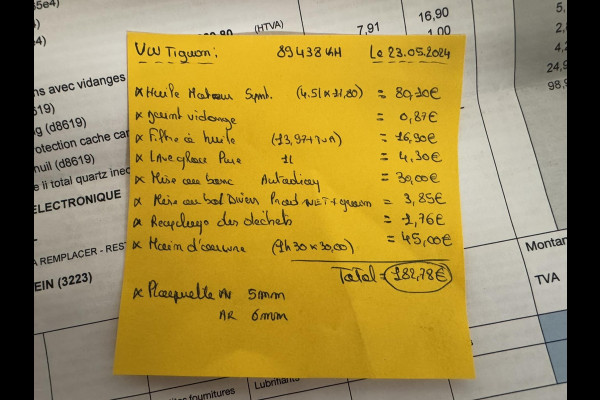 5e4)
16,90
(HTVA)
7,91
1,00
ns avec vidanges
619)
g (d8619)
rotection cache car
nuil (d8619)
e ii total quartz inec
ELECTRONIQUE
A REMPLACER - RES
EIN (3223)
Montan
TVA
Lubrifiants
fournitures
VW Tiguan: 89438 KM Le 23.05.2024
x Huile Moteur Synt. (4.5l x 17,80) = 80,10€
x Joint vidange = 0,87€
x Filtre à huile (13,97+TVA) = 16,90€
x Lave glace Pure 1L = 4,30€
x Mise au banc Autodiag = 30,00€
x Mise au bat Divers Prod NET + graisse = 3,85€
x Recyclage des déchets = 1,76€
x Main d'oeuvre (1h30 x 30,00) = 45,00€
Total = 182,78€
x Plaquette AV 5mm
AR 6mm